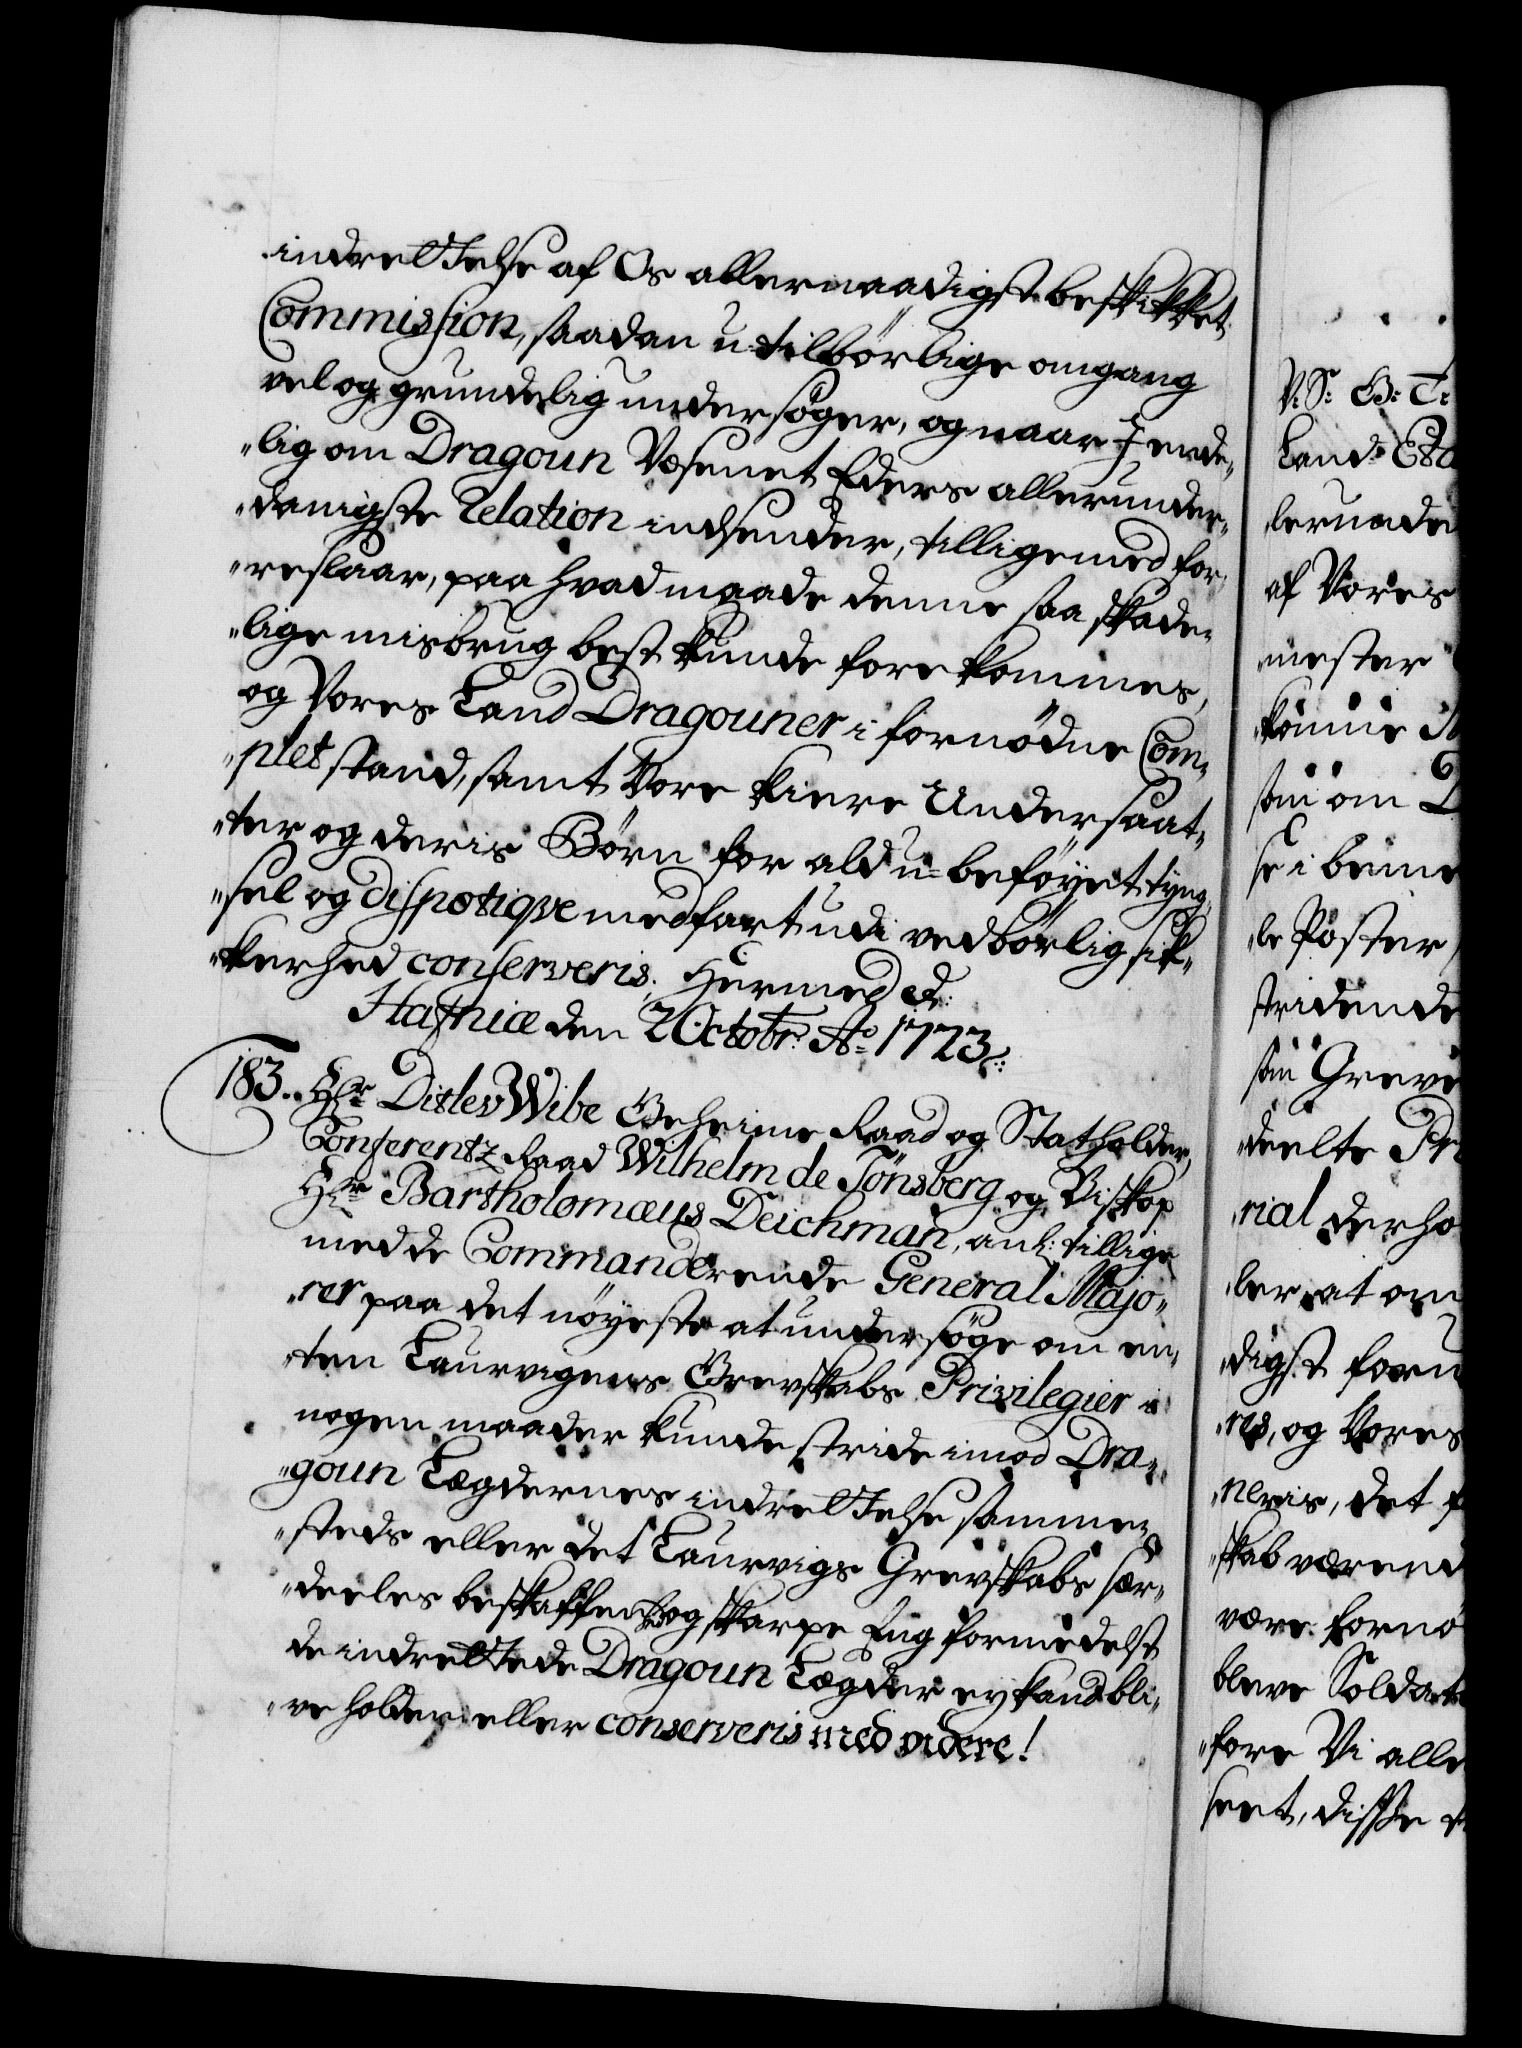 indrettelse af Os allernaadigst beskikket
Commission, saadan u-tilbörlige omgang
vel og grundelig undersöger, og naar I ende-
"lig om Dragoun Væsenet Eders allerunder-
"danigste Relation indsender, tilligemed for-
"reslaar, paa hvad maade denne saa skade-
"lige misbrug best kunde forekommes,
og Vores Land Dragouner i fornödne Com-
"plet stand, samt Vore kiere Undersaat-
"ter og deris Börn for ald u-beföyet tyng-
"sel og dispotiqve medfart udi vedbörlig sik-
"kerhed conserveris. Hermed &:
Hafniæ den 2 Octobr: Ao 1723.
183. Hr Ditlev Wibe Geheime Raad og Statholder,
Conferentz Raad Wilhelm de Tönsberg og Biskop
Hr Bartholomæus Deichman, anl: tillige
med de Commanderende General Majo-
"rer paa det nöyeste at undersöge om en-
"ten Laurvigens Grevskabs Privilegier i
nogen maader kunde stride imod Dra-
"goun Lægdernes indrettelse samme-
"steds eller det Laurvigs Grevskabs sær-
"deeles beskaffenhed og skarpe Eng formedelst
de indrettede Dragoun Lægder ey kand bli-
"ve holden eller conserveris med videre!
V. S: G: T:
Land Eta
lernaade
af Vores
mester
kunne
som om
se i
le Poster
stridende
som Greve
deelte Pri
rial derho
ler at om
digst forn
res, og Vores
neris, det
skab værend
være fornö
bleve Soldat
"fore Vi alle
seet, disse